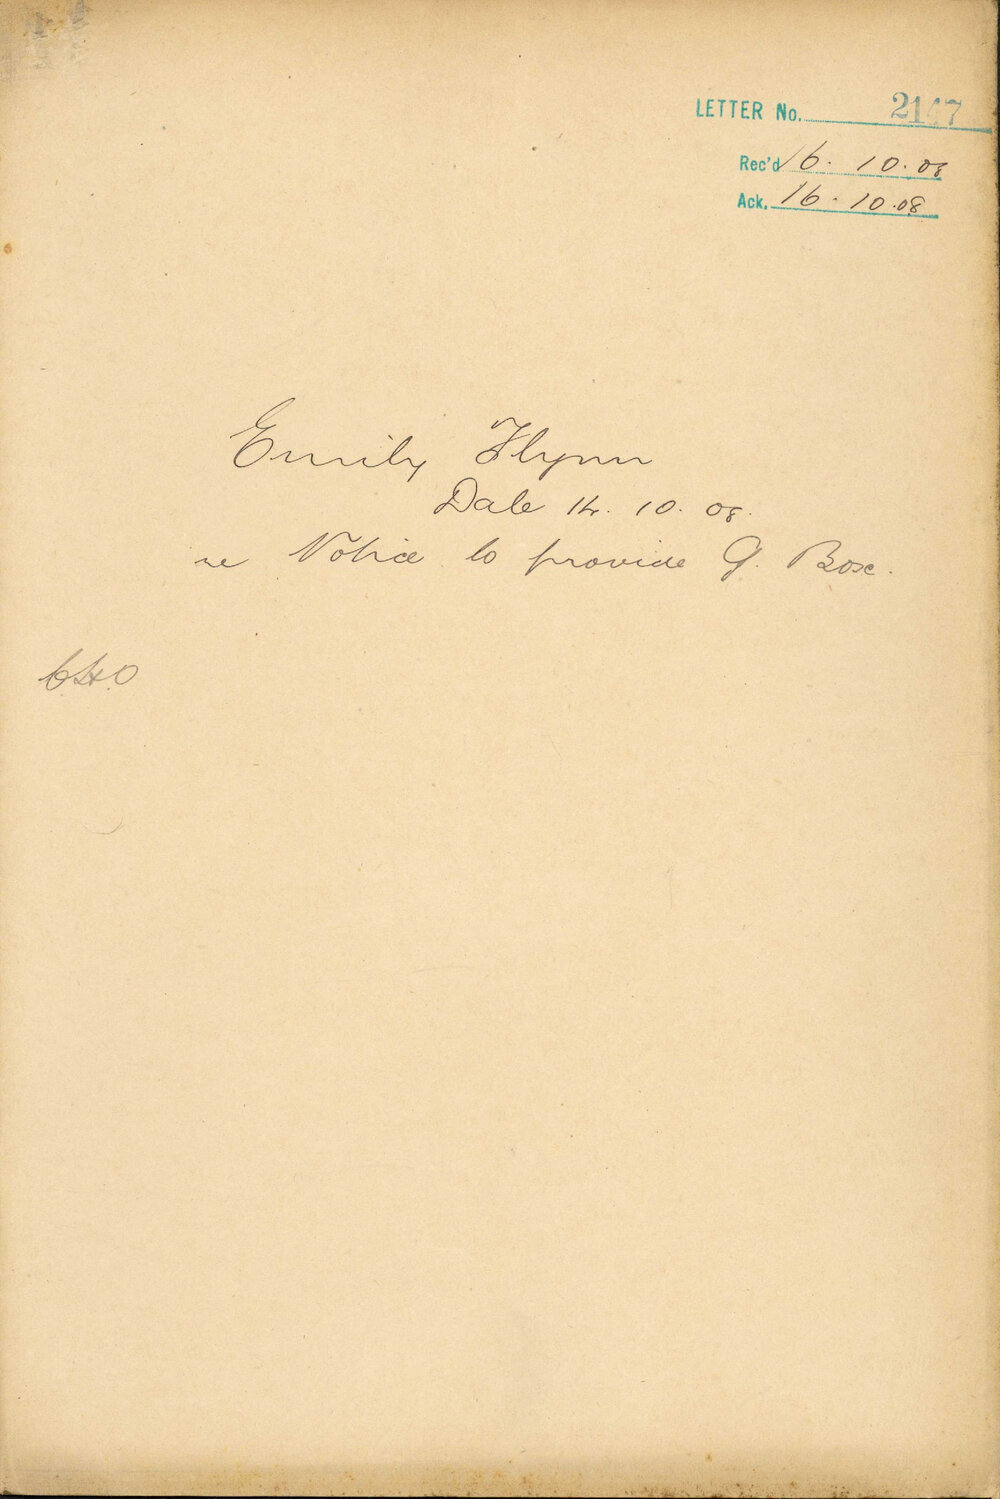 LETTER No. 2147
Rec'd 16. 10. 08
Ack. 16. 10. 08
Emily Flynn
Date 14. 10. 08.
re Notice to provide G. Box.